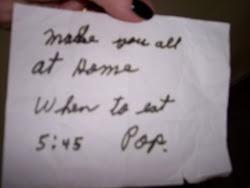 Make you all
at Home
When to eat
5:45 Pop.